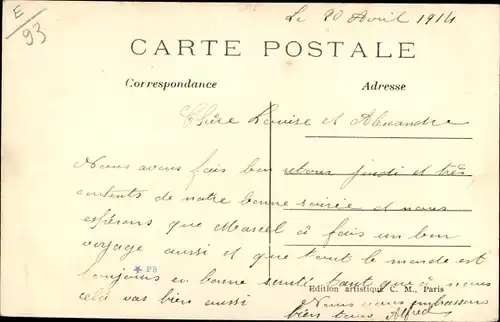 E
93
Le 20 Avril 1914
CARTE POSTALE
Correspondance
Adresse
Chère Louise et Alexandre
Nous avons fais bon retour jeudi et très
contents de notre bonne soirée et nous
espérons que Marcel à fais un bon
voyage aussi et que tout le monde est
toujours en bonne santé tant que à nous
celà vas bien aussi
PB
Edition artistique C. M., Paris
Nous vous embrassons
bien tous Alfred